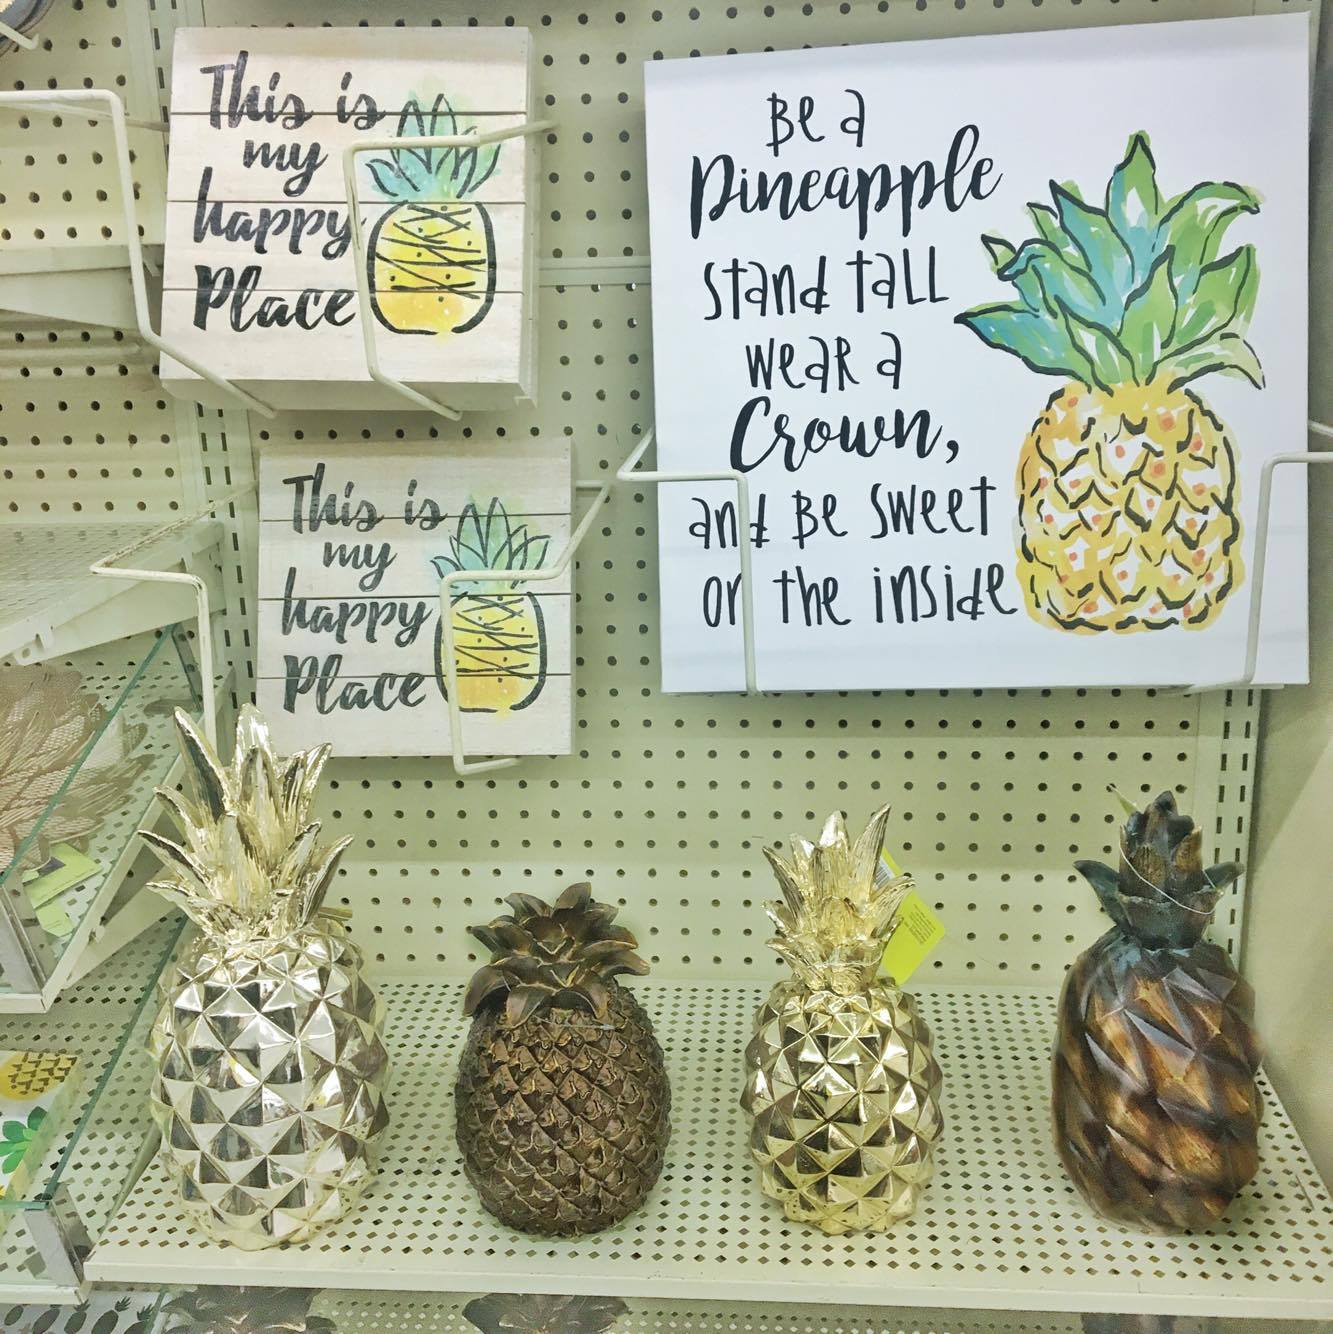 This is
my
happy
Place
Be a
Pineapple
stand tall
wear a
Crown,
and Be sweet
on the inside
This is
my
happy
Place